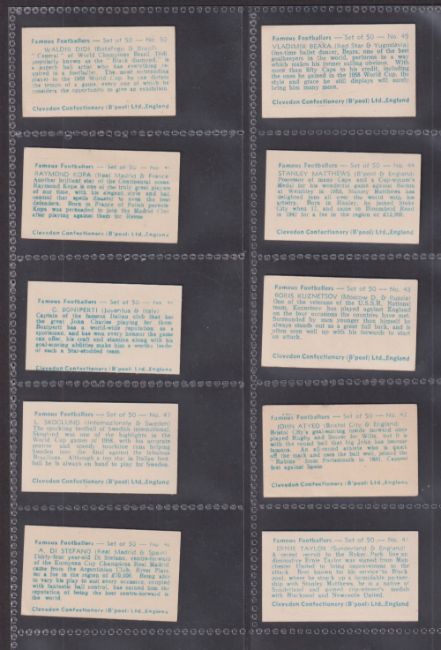 Famous Footballers — Set of 50 — No. 50
WALDYR DIDI (Botafogo & Brazil)
"General" of World Champions Brazil, Didi,
popularly known as the "Black diamond", is
a superb ball artist who has everything re-
quired in a footballer. The most outstanding
player in the 1958 World Cup, he can dictate
the trends of a game, every one of which he
considers the opportunity to give an exhibition.
Clevedon Confectionery (B'pool) Ltd., England
Famous Footballers — Set of 50 — No.
RAYMOND KOPA (Real Madrid & France)
Another brilliant star of the Continental scene
Raymond Kopa is one of the truly great players
of our time, with his elegant style and ball
control that spells disaster to even the best
defenders. Born in France of Polish parents
Kopa was persuaded to join the Madrid Club
after playing against them for Reims
Clevedon Confectionery (B'pool) Ltd., England
Famous Footballers — Set of 50 — No.
C. BONIPERTI (Juventus & Italy)
Captain of the famous Italian club that has
great John Charles playing for them
Boniperti has a world-wide reputation as a
sportsman, and has won every honour the game
can offer, his craft and stamina along with his
goal-scoring abilities make him a worthy leader
of such a Star-studded team.
Clevedon Confectionery (B'pool) Ltd., England
Famous Footballers — Set of 50 — No. 47
L. SKOGLUND (Internazionale & Sweden)
The sparkling football of Swedish international,
Skoglund was one of the highlights in the
World Cup games of 1958, with his accurate
centres and speedy touchline runs helping
Sweden into the final against the fabulous
Brazilians. Although a top star in Italian Foot-
ball he is always on hand to play for Sweden.
Clevedon Confectionery (B'pool) Ltd., England
Famous Footballers — Set of 50 — No.
A. DI STEFANO (Real Madrid & Spain)
Thirty-four year-old Di Stefano, centre-forward
of the European Cup Champions Real Madrid
came from the Argentine
for a fee in the region of £70,000. Being able
to vary his play to suit every occasion, coupled
with fantastic ball control, has earned him the
reputation of being the best centre-forward in
the world.
Clevedon Confectionery (B'pool) Ltd., England
Famous Footballers — Set of 50 — No. 45
VLADIMIR BEARA (Red Star & Yugoslavia)
One-time ballet dancer, Beara, one of the best
goalkeepers in the world, performs in a way
which makes his former calling obvious. With
more than fifty Caps to his credit, including
the ones he gained in the 1958 World Cup, his
style and grace he still displays will surely
bring him many more.
Clevedon Confectionery (B'pool) Ltd., England
Famous Footballers — Set of 50 — No. 44
STANLEY MATTHEWS (B'pool & England)
Possessor of many Caps and a Cup-winner's
Medal for his wonderful game against Bolton
at Wembley in 1953, Stanley Matthews has
delighted fans all over the world with his
artistry. Born in Hanley, he joined Stoke
City when 17, and came to Bloomfield Road
in 1947 for a fee in the region of £12,000.
Clevedon Confectionery (B'pool) Ltd., England
Famous Footballers — Set of 50 — No. 43
BORIS KUZNETSOV (Moscow D. & Russia)
One of the veterans of the U.S.S.R. National
team, Kuznetsov has played against England
on the four occasions the countries have met.
Surrounded by men younger than himself he
always stands out as a great full back, and is
often seen well up with his forwards to start
an attack.
Clevedon Confectionery (B'pool) Ltd., England
Famous Footballers — Set of 50 — No. 42
JOHN ATYEO (Bristol City & England)
Bristol City's goal-scoring inside forward once
played Rugby and Soccer for Wilts, but it is
with the round ball that big John has become
famous. An all-round athlete who is quick
off the mark and uses the ball well, joined the
"Robins" from Portsmouth in 1951. Capped
first against Spain
Clevedon Confectionery (B'pool) Ltd., England
Famous Footballers — Set of 50 — No. 41
ERNIE TAYLOR (Sunderland & England)
A recent recruit to the Roker Park line-up
diminutive Ernie Taylor was signed from Man-
chester United to bring
attack. Previous to this he saw service in Black-
pool, where he struck up a formidable partner-
ship with Stanley Matthews, he is a native of
Sunderland and gained cup-winner's medals
with Blackpool and Newcastle United.
Clevedon Confectionery (B'pool) Ltd., England